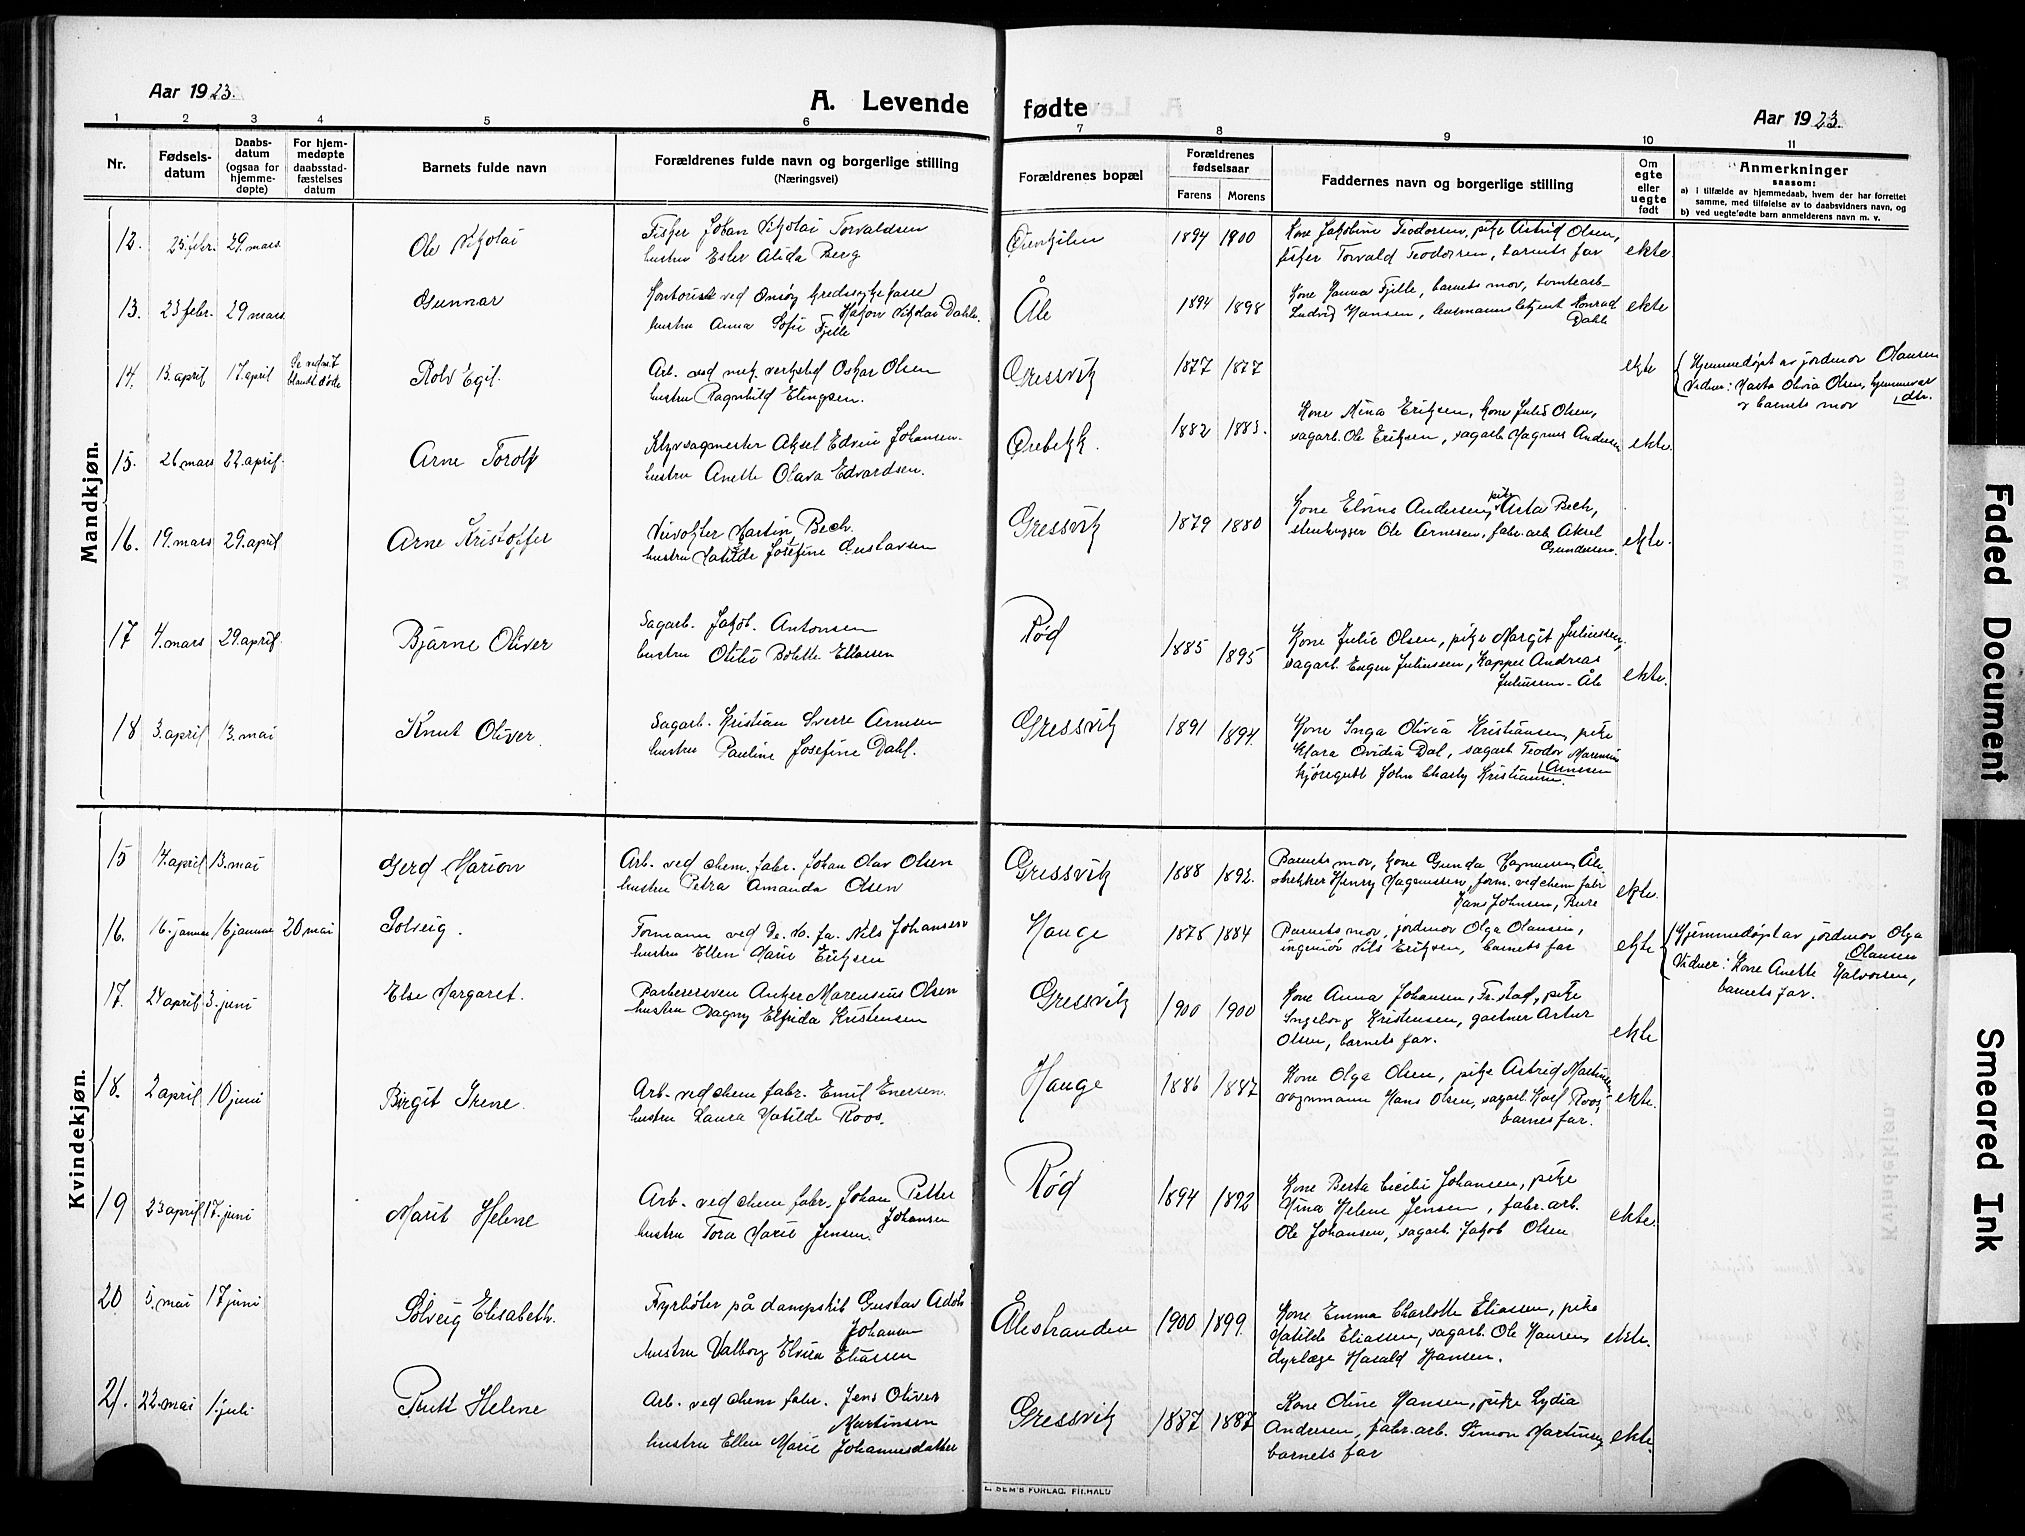 Aar 1923.
A. Levende fødte
Aar 1923.
1 2 3 4 5 6 7 8 9 10 11
Nr.
Fødsels-
datum
Daabs-
datum
(ogsaa for
hjemme-
døpte)
For hjem-
medøpte
daabsstad-
fæstelses
datum
Barnets fulde navn
Forældrenes fulde navn og borgerlige stilling
(Næringsvei)
Forældrenes bopæl
Forældrenes
fødselsaar
Farens Morens
Faddernes navn og borgerlige stilling
Om
egte
eller
uegte
født
Anmerkninger
saasom:
a) i tilfælde av hjemmedaab, hvem der har forrettet
samme, med tilføielse av to daabsvidners navn, og
b) ved uegte fødte barn anmelderens navn m. v.
Mandkjøn.
12. 25. febr. 29. mars Ole Nikolai
Fisker Johan Nikolai Torvaldsen
hustru Ester Alida Berg
1894 1900
Kone Jakobine Teodorsen, pike Astrid Olsen,
fisker Torvald Teodorsen, barnets far
ekte.
13. 23 febr. 29 mars Gunnar
Kontorist ved Onsøy kredssykekasse
Håkon Nikolai Dahle.
hustru Anna Sofie Fjelle
Åle 1894 1898
Kone Hanna Fjelle, barnets mor, tomtearb.
Ludvig Hansen, Konrad
Dahle
ekte
14. 13. april 17. april
Se vedr. nr 1
blandt døde
Rolv Egil.
Arb. ved mek. verksted Oskar Olsen
hustru Ragnhild Elingsen.
Gressvik 1877 1877
ekte
Hjemmedøpt av jordmor Olaussen
Vidner: Marta Olivia Olsen, hjemmevær.
dtr.
og barnets mor
15. 26 mars 22. april. Arne Torolf
Klyvsagmester Aksel Edvin Johansen.
hustru Anette Olava Edvardsen.
Ørebekk. 1882 1883.
Kone Nina Eriksen, kone Julie Olsen,
sagarb. Ole Eriksen, sagarb. Magnus Andersen
ekte.
16. 19. mars 29. april Arne Kristoffer
Martin Bech.
hustru Matilde Josefine Gustavsen
Gressvik 1879 1880
Kone Elvine Andersen, pike Asta Bech,
stenhugger Ole Arnesen, fabr. arb. Aksel
Gundersen.
ekte.
17 4. mars 29. april. Bjarne Oliver
Sagarb. Jakob. Antonsen
hustru Otilie Bolette Ellassen
Rød 1885 1895
Kone Julie Olsen, pike Margit Juliussen,
sagarb. Eugen Juliussen, Kapper Andreas
Juliussen - Åle
ekte.
18 3. april 13. mai Knut Oliver.
Sagarb. Kristian Sverre Arnesen
hustru Pauline Josefine Dahl.
Gressvik 1891 1894.
Kone Inga Olivia Kristiansen, pike
Klara Ovidia Dal, sagarb. Teodor Marensius
Arnesen
kjøregutt John Charly Kristiansen.
Kvindekjøn.
15 14. april 13. mai Gerd Marion
Arb. ved chem. fabr. Johan Olav Olsen
hustru Petra Amanda Olsen
Gressvik 1888 1892.
Barnets mor, kone Gunda Magnussen, Åle.
blekker Henry Magnussen, form. ved chem fabr
Hans Johnsen, Bure
ekte.
16. 16. januar 16 januar 20 mai Solveig.
Formann ved De. No. fa. Nils Johansen
hustru Ellen Marie Eriksen
Hauge 1878 1884
Barnets mor, jordmor Olga Olaussen,
ingeniør Nils Eriksen, barnets far
ekte
Hjemmedøpt av jordmor Olga
Olaussen
Vidner: Kone Anette Halvorsen,
barnets far.
17. 24 april 3. juni Else Margaret.
Barbersvenn Anker Marensius Olsen
hustru Dagny Elfrida Kristensen
Gressvik 1900 1900
Kone Anna Johansen, Fr.stad, pike
Ingeborg Kristensen, gartner Artur
Olsen, barnets far.
ekte
18. 2 april 10 juni Birgit Irene.
Arb. ved chem fabr. Emil Enersen.
hustru Laura Matilde Roos.
Hauge 1886 1887
Kone Olga Olsen, pike Astrid Martinsen
vognmann Hans Olsen, sagarb. Karl Roos,
barnes far.
ekte.
19 23 april 17. juni Marit Helene
Arb. ved chem fabr. Johan Petter
Johansen
hustru Tora Marie Jensen.
Rød 1894 1892
Kone Berta Cicilie Johansen, pike
Nina Helene Jensen, fabr. arb.
Ole Johansen, sagarb. Jakob Olsen
ekte.
20 5. mai 17 juni Solveig Elisabeth.
Fyrbøter på dampskib Gustav Adolf
Johansen
hustru Valborg Elvira Eliassen
Ålestranden 1900 1899
Kone Emma Charlotte Eliassen, pike
Matilde Eliassen, sagarb. Ole Hansen,
dyrlæge Harald Hansen.
ekte.
21. 22. mai 1. juli Rutt Helene
Arb. ved chem fabr. Jens Oliver
Martinsen
hustru Ellen Marie Johannesdatter
Gressvik 1887 1887
Kone Oline Hansen, pike Lydia
Andresen, fabr. arb. Simon Martinsen
barnets far
ekte.
E. SEM'S FORLAG, FR.HALD
Faded Document
Smeared Ink